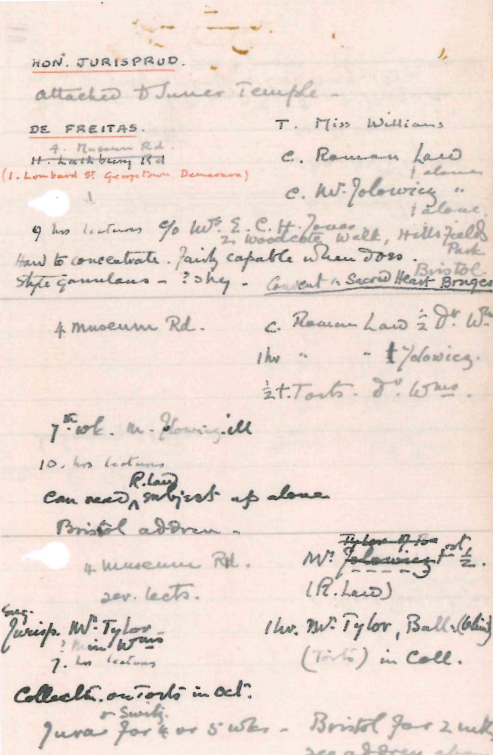 HON. JURISPRUD.
attached to Inner Temple -
DE FREITAS. T. Miss Williams
4. Museum Rd.
H. Lathbury Rd C. Roman Law
(1. Lombard St. Georgetown. Demerara) 1 alone
C. Mr. Jolowicz "
1 alone.
9 hrs lectures c/o Mrs. E. C. H. Jones
2. Woodcote Walk, Hills
Park
Hard to concentrate. Fairly capable when does. Bristol
Style garrulous - ? shy. Convent of Sacred Heart Bruges
4. Museum Rd. C. Roman Law ½ Dr. Wms
1 hr " " Jolowicz.
½ t. Torts. Dr. Wms.
7th wk. Mr. Jolowicz ill
10. hrs lectures
Can read R. Law subject up alone
Bristol address -
4. Museum Rd. Mr. Jolowicz ½.
sev. lects. (R. Law)
Jurisp. Mr. Tylor 1 hr. Mr. Tylor, Ball. (blind)
? Wms
7. hrs lectures (Torts) in Coll.
Collectn. on Torts in Oct.
or Switz.
Jura for 4 or 5 wks - Bristol for 2 wks